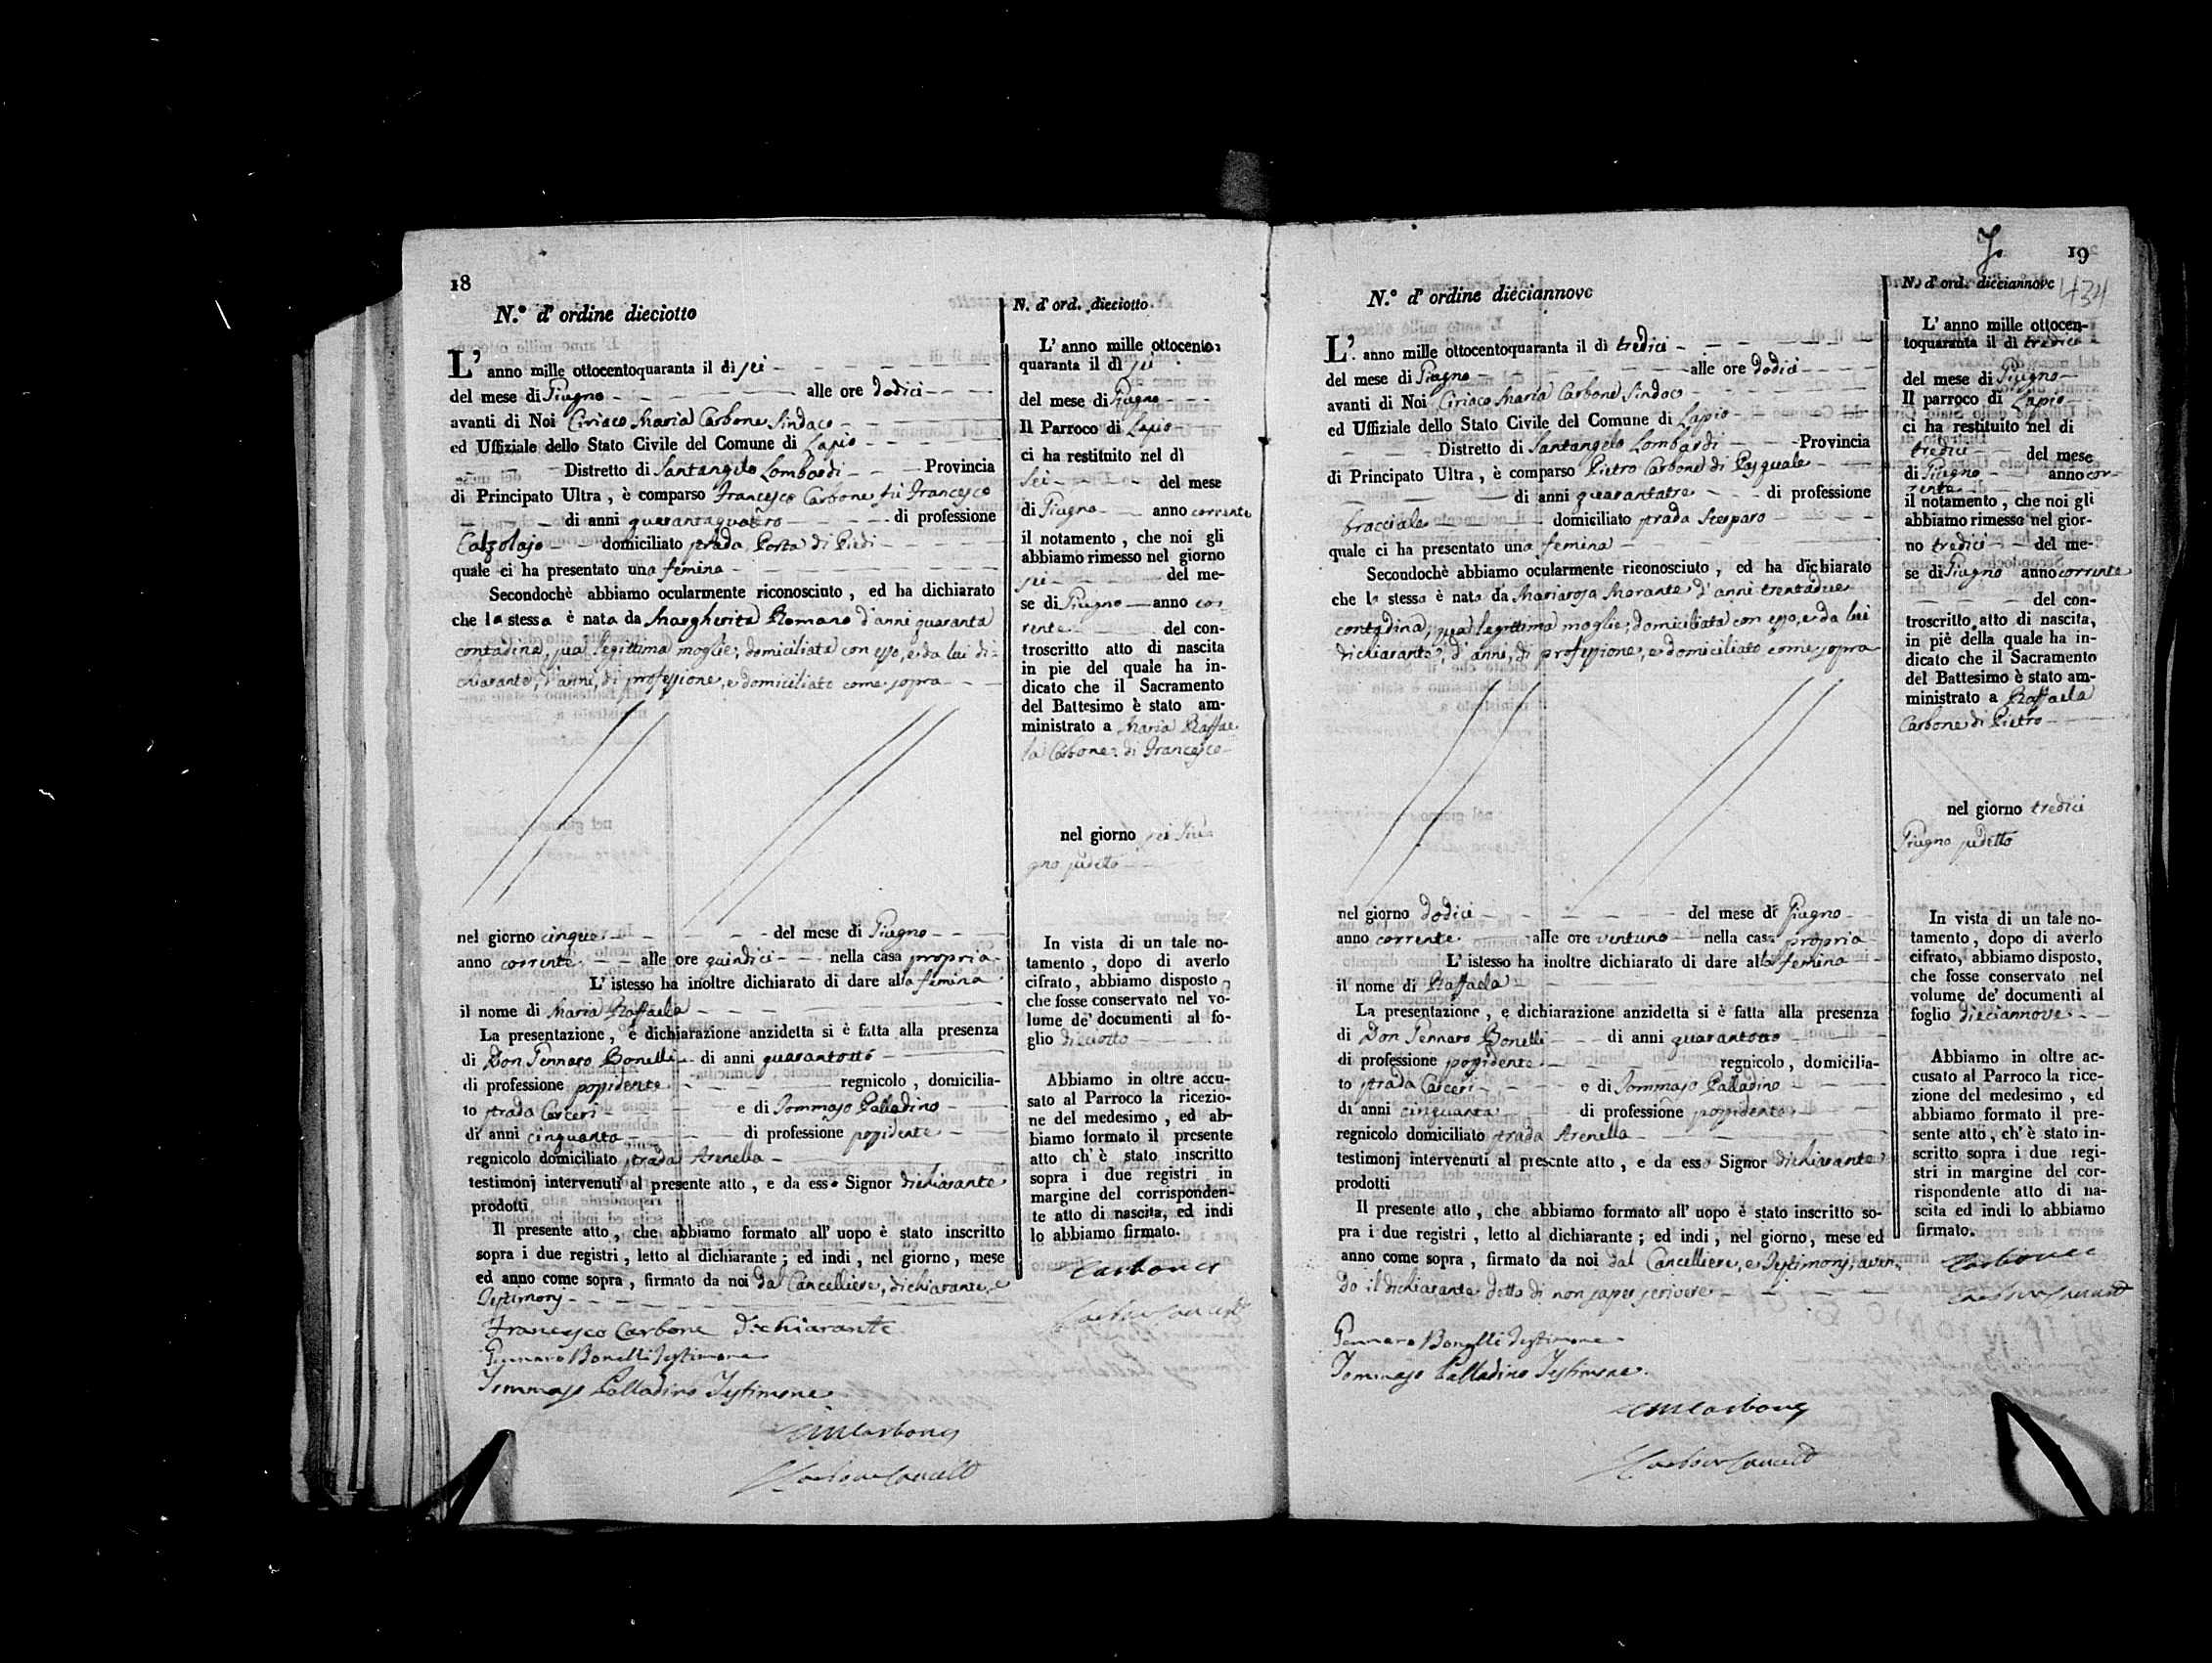 18
N.° d' ordine dieciotto
L' anno mille ottocentoquaranta il dì sei
del mese di Giugno alle ore dodici
avanti di Noi Ciriaco Maria Carbone Sindaco
ed Uffiziale dello Stato Civile del Comune di Lapio
Distretto di Santangelo Lombardi Provincia
di Principato Ultra, è comparso Francesco Carbone fù Francesco
di anni quarantaquattro di professione
Calzolajo domiciliato strada Porta di Piedi
quale ci ha presentato una femina
Secondochè abbiamo ocularmente riconosciuto, ed ha dichiarato
che la stessa è nata da Margherita Romano d'anni quaranta
contadina, sua legittima moglie, domiciliata con esso, e da lui di=
chiarante, d'anni, di professione, e domiciliato come sopra
nel giorno cinque del mese di Giugno
anno corrente alle ore quindici nella casa propria
L' istesso ha inoltre dichiarato di dare alla femina
il nome di Maria Raffaela
La presentazione, e dichiarazione anzidetta si è fatta alla presenza
di Don Gennaro Bonelli di anni quarantotto
di professione possidente regnicolo, domicilia-
to strada Carceri e di Tommaso Palladino
di anni cinquanta di professione possidente
regnicolo domiciliato strada Arenella
testimonj intervenuti al presente atto, e da esso Signor dichiarante
prodotti
Il presente atto, che abbiamo formato all' uopo è stato inscritto
sopra i due registri, letto al dichiarante; ed indi, nel giorno, mese
ed anno come sopra, firmato da noi dal Cancelliere, dichiarante, e
Testimonj
Francesco Carbone Dichiarante
Gennaro Bonelli Testimone
Tommaso Palladino Testimone
CMCarbone
N. d' ord. dieciotto
L' anno mille ottocento-
quaranta il dì sei
del mese di Giugno
Il Parroco di Lapio
ci ha restituito nel dì
sei del mese
di Giugno anno corrente
il notamento, che noi gli
abbiamo rimesso nel giorno
sei del me-
se di Giugno anno cor
rente del con-
troscritto atto di nascita
in pie del quale ha in-
dicato che il Sacramento
del Battesimo è stato am-
ministrato a Maria Raffae
la Carbone di Francesco
nel giorno sei Giu
gno sudetto
In vista di un tale no-
tamento, dopo di averlo
cifrato, abbiamo disposto,
che fosse conservato nel vo-
lume de' documenti al fo-
glio dieciotto
Abbiamo in oltre accu-
sato al Parroco la ricezio-
ne del medesimo, ed ab-
biamo formato il presente
atto ch' è stato inscritto
sopra i due registri in
margine del corrisponden-
te atto di nascita, ed indi
lo abbiamo firmato.
Carbone
7.
19
434
N.° d' ordine dieciannove
L'. anno mille ottocentoquaranta il di tredici
del mese di Giugno alle ore dodici
avanti di Noi Ciriaco Maria Carbone Sindaco
ed Uffiziale dello Stato Civile del Comune di Lapio
Distretto di Santangelo Lombardi Provincia
di Principato Ultra, è comparso Pietro Carbone di Pasquale
di anni quarantatre di professione
bracciale domiciliato strada Scesparo
quale ci ha presentato una femina
Secondochè abbiamo ocularmente riconosciuto, ed ha dichiarato
che la stessa è nata da Mariarosa Morante d'anni trentadue
contadina, sua legittima moglie, domiciliata con esso, e da lui
dichiarante, d'anni, di professione, e domiciliato come sopra
nel giorno dodici del mese di Giugno
anno corrente alle ore ventuno nella casa propria
L' istesso ha inoltre dichiarato di dare alla femina
il nome di Raffaela
La presentazione, e dichiarazione anzidetta si è fatta alla presenza
di Don Gennaro Bonelli di anni quarantotto
di professione possidente regnicolo, domicilia-
to strada Carceri e di Tommaso Palladino
di anni cinquanta di professione possidente
regnicolo domiciliato strada Arenella
testimonj intervenuti al presente atto, e da esso Signor dichiarante
prodotti
Il presente atto, che abbiamo formato all' uopo è stato inscritto so-
pra i due registri, letto al dichiarante; ed indi, nel giorno, mese ed
anno come sopra, firmato da noi dal Cancelliere, e Testimonj, aven
do il dichiarante detto di non saper scrivere
Gennaro Bonelli Testimone
Tommaso Palladino Testimone
CMCarbone
N. d' ord. dieciannove
L' anno mille ottocen-
toquaranta il dì tredici
del mese di Giugno
Il parroco di Lapio
ci ha restituito nel di
tredici del mese
di Giugno anno cor-
rente
il notamento, che noi gli
abbiamo rimesso nel gior-
no tredici del me-
se di Giugno anno corrente
del con-
troscritto atto di nascita,
in piè della quale ha in-
dicato che il Sacramento
del Battesimo è stato am-
ministrato a Raffaela
Carbone di Pietro
nel giorno tredici
Giugno sudetto
In vista di un tale no-
tamento, dopo di averlo
cifrato, abbiamo disposto,
che fosse conservato nel
volume de' documenti al
foglio dieciannove
Abbiamo in oltre ac-
cusato al Parroco la rice-
zione del medesimo, ed
abbiamo formato il pre-
sente atto, ch' è stato in-
scritto sopra i due regi-
stri in margine del cor-
rispondente atto di na-
scita ed indi lo abbiamo
firmato.
Carbone